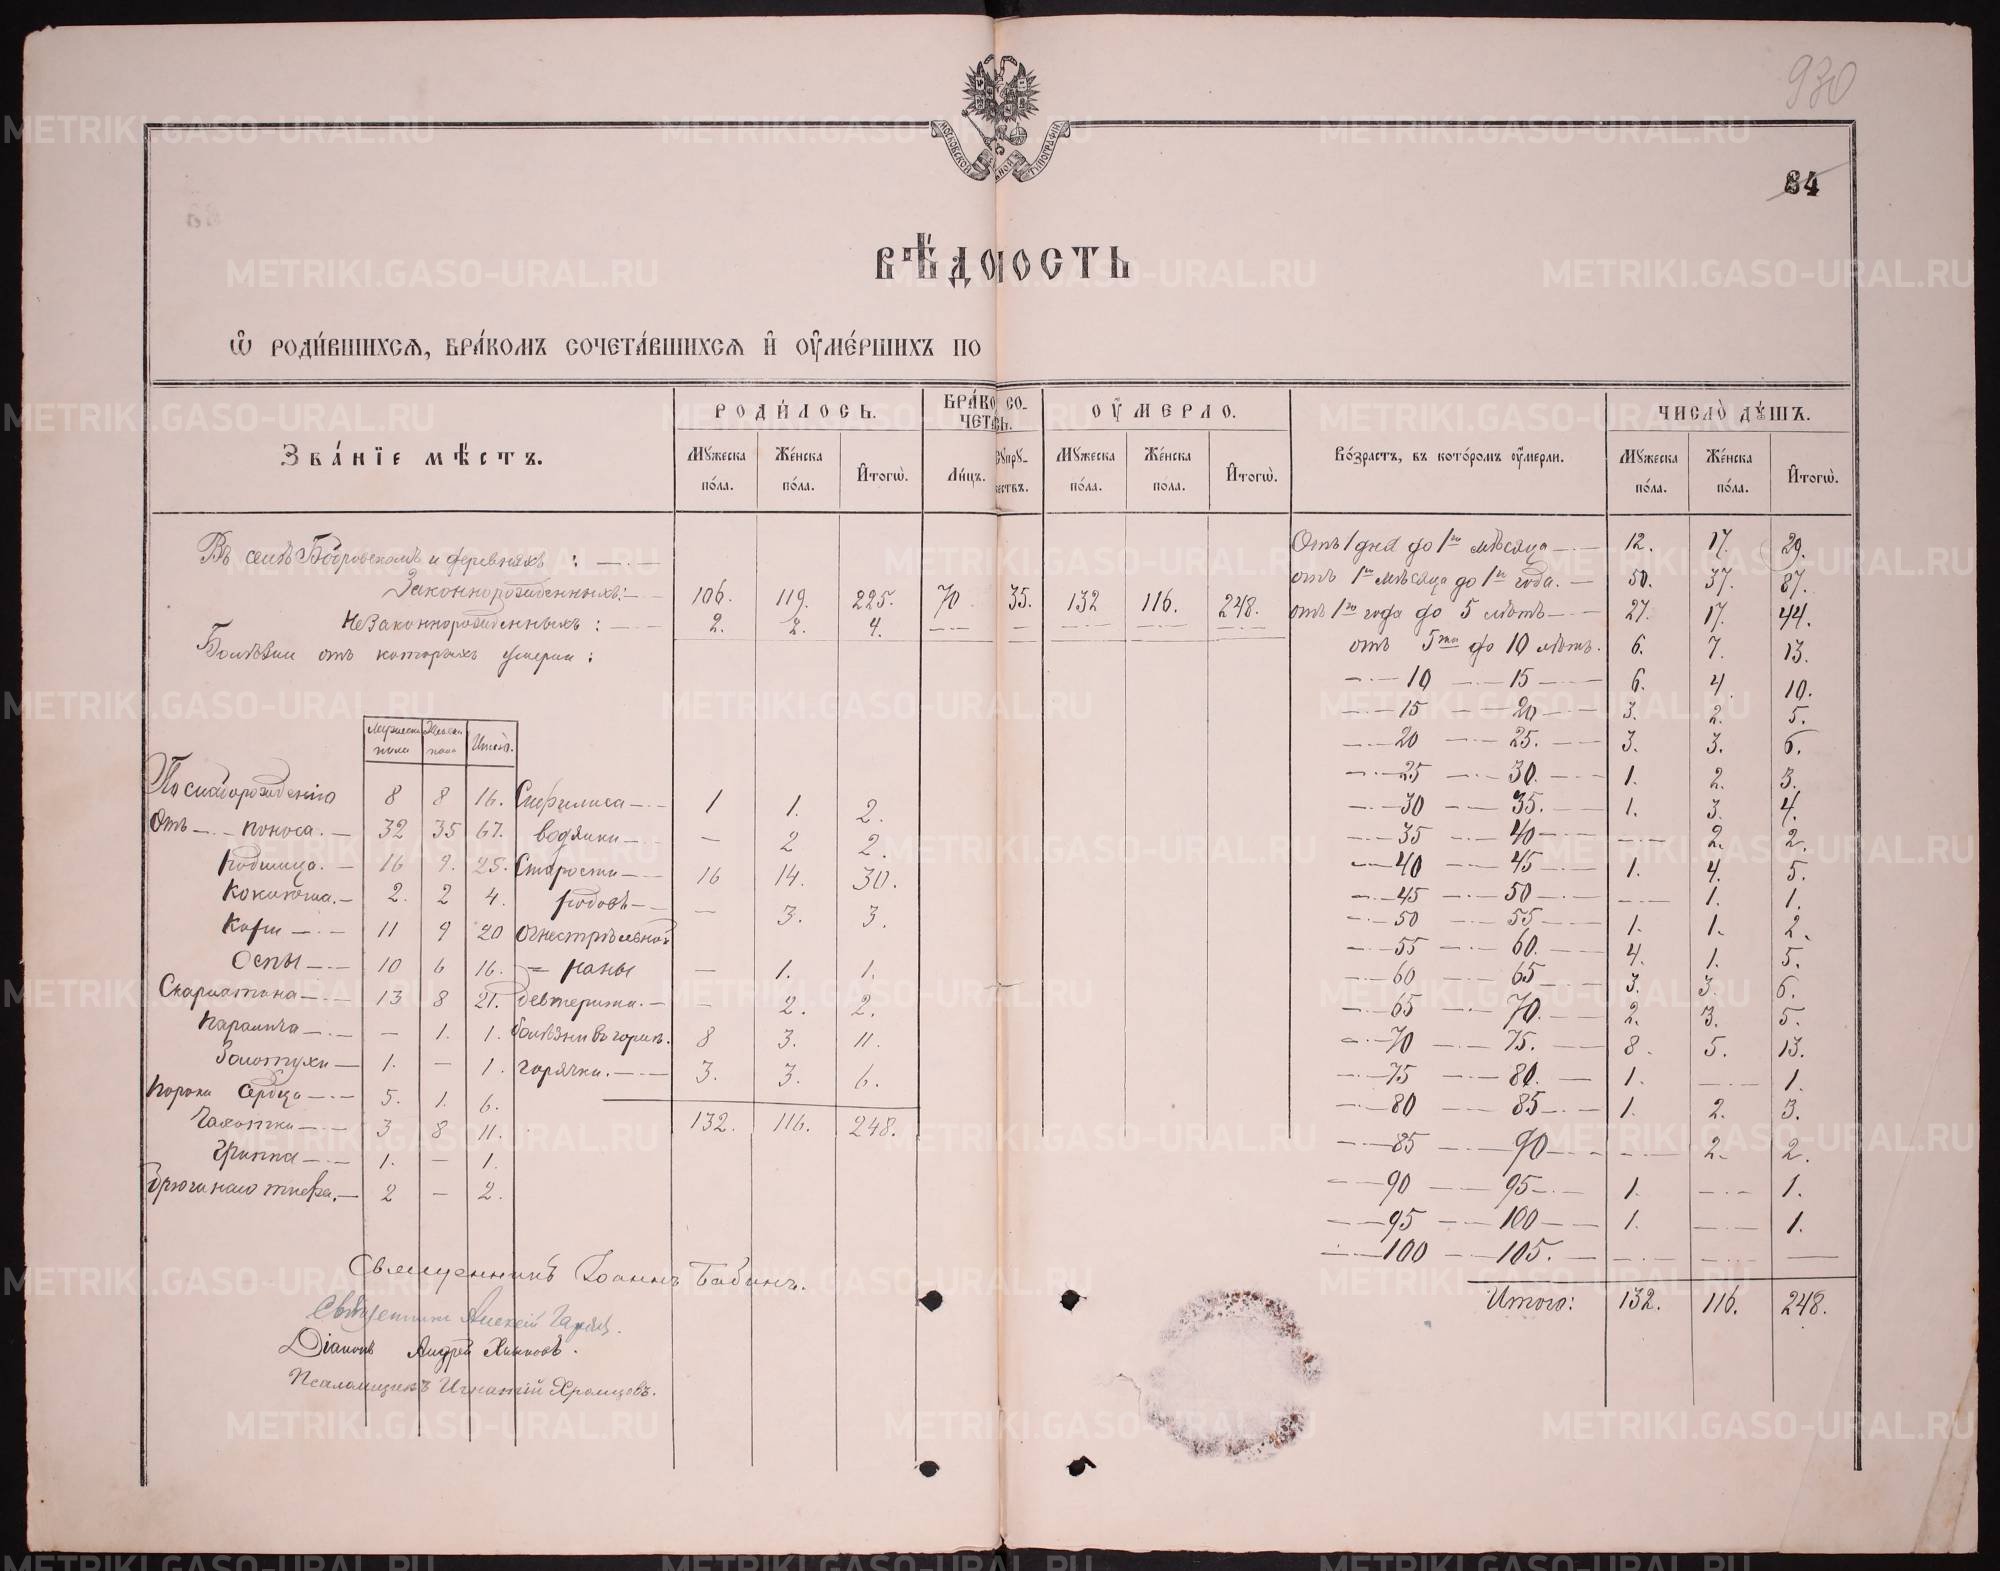 930
МОСКОВСКОЙ ТИПОГРАФІИ
84
ВѢДОМОСТЬ
Ѡ РОДИ́ВШИХСѦ, БРА́КОМЪ СОЧЕТА́ВШИХСѦ И҆ ОУ҆МЕ́РШИХЪ ПО
ЗВА́НІЕ МѢСТЪ. РОДИ́ЛОСЬ. БРА́КО СОЧЕТ ОУ҆МЕРЛО. Во́зрастъ, въ кото́ромъ оу҆мерли. ЧИСЛО̀ ДꙊ́ШЪ.
Мꙋжеска по́ла. Же́нска по́ла. И҆того̀. Ли́цъ. Мꙋжеска по́ла. Же́нска по́ла. И҆того̀. Мꙋжеска по́ла. Же́нска по́ла. И҆того̀.
Въ селѣ Бобровскомъ и деревняхъ :
Законнорожденныхъ: 106. 119. 225. 70 35. 132 116. 248.
Незаконнорожденныхъ : 2. 2. 4. — — — — —
Болѣзни отъ которыхъ умерли :
Мужеска пола Женска пола Итого.
По слаборожденію 8 8 16. Сифилиса — 1 1. 2.
Отъ — поноса. — 32 35 67. водянки — — 2 2.
Родимца. — 16 9. 25. Старости — 16 14. 30.
Коклюша. — 2. 2 4. родовъ — — 3. 3.
Кори — 11 9 20 огнестрѣльной
Оспы — 10 6 16. — раны — 1. 1.
Скарлатина — 13 8 21. девтерита. — — 2. 2.
Паралича — — 1. 1. болѣзни въ горлѣ. 8 3. 11.
Золотухи — 1. — 1. горячки. — 3. 3. 6.
Порока сердца — 5. 1. 6.
132. 116. 248.
Чахотки — 3 8 11.
Гриппа — 1. — 1.
Брюшнаго тифа. — 2 — 2.
Священникъ Іоаннъ Бабинъ.
Священникъ Алексѣй
Діаконъ Андрей
Псаломщикъ Игнатій Хромцовъ.
Отъ 1 дня до 1го мѣсяца — 12. 17. 29.
отъ 1го мѣсяца до 1го года. — 50. 37. 87.
отъ 1го года до 5 лѣтъ — 27. 17. 44.
отъ 5ти до 10 лѣтъ. 6. 7. 13.
— 10 — 15 — 6. 4. 10.
— 15 — 20 — 3. 2. 5.
— 20 — 25. — 3. 3. 6.
— 25 — 30. — 1. 2. 3.
— 30 — 35. — 1. 3. 4.
— 35 — 40 — — 2. 2.
— 40 — 45 — 1. 4. 5.
— 45 — 50 — — 1. 1.
— 50 — 55 — 1. 1. 2.
— 55 — 60. — 4. 1. 5.
— 60 — 65 — 3. 3. 6.
— 65 — 70. — 2. 3. 5.
— 70 — 75. — 8. 5. 13.
— 75 — 80. — 1. — 1.
— 80 — 85 — 1. 2. 3.
— 85 — 90 — — 2. 2.
— 90 — 95 — 1. — 1.
— 95 — 100 — 1. — 1.
— 100 — 105. — — — —
Итого: 132. 116. 248.
METRIKI.GASO-URAL.RU